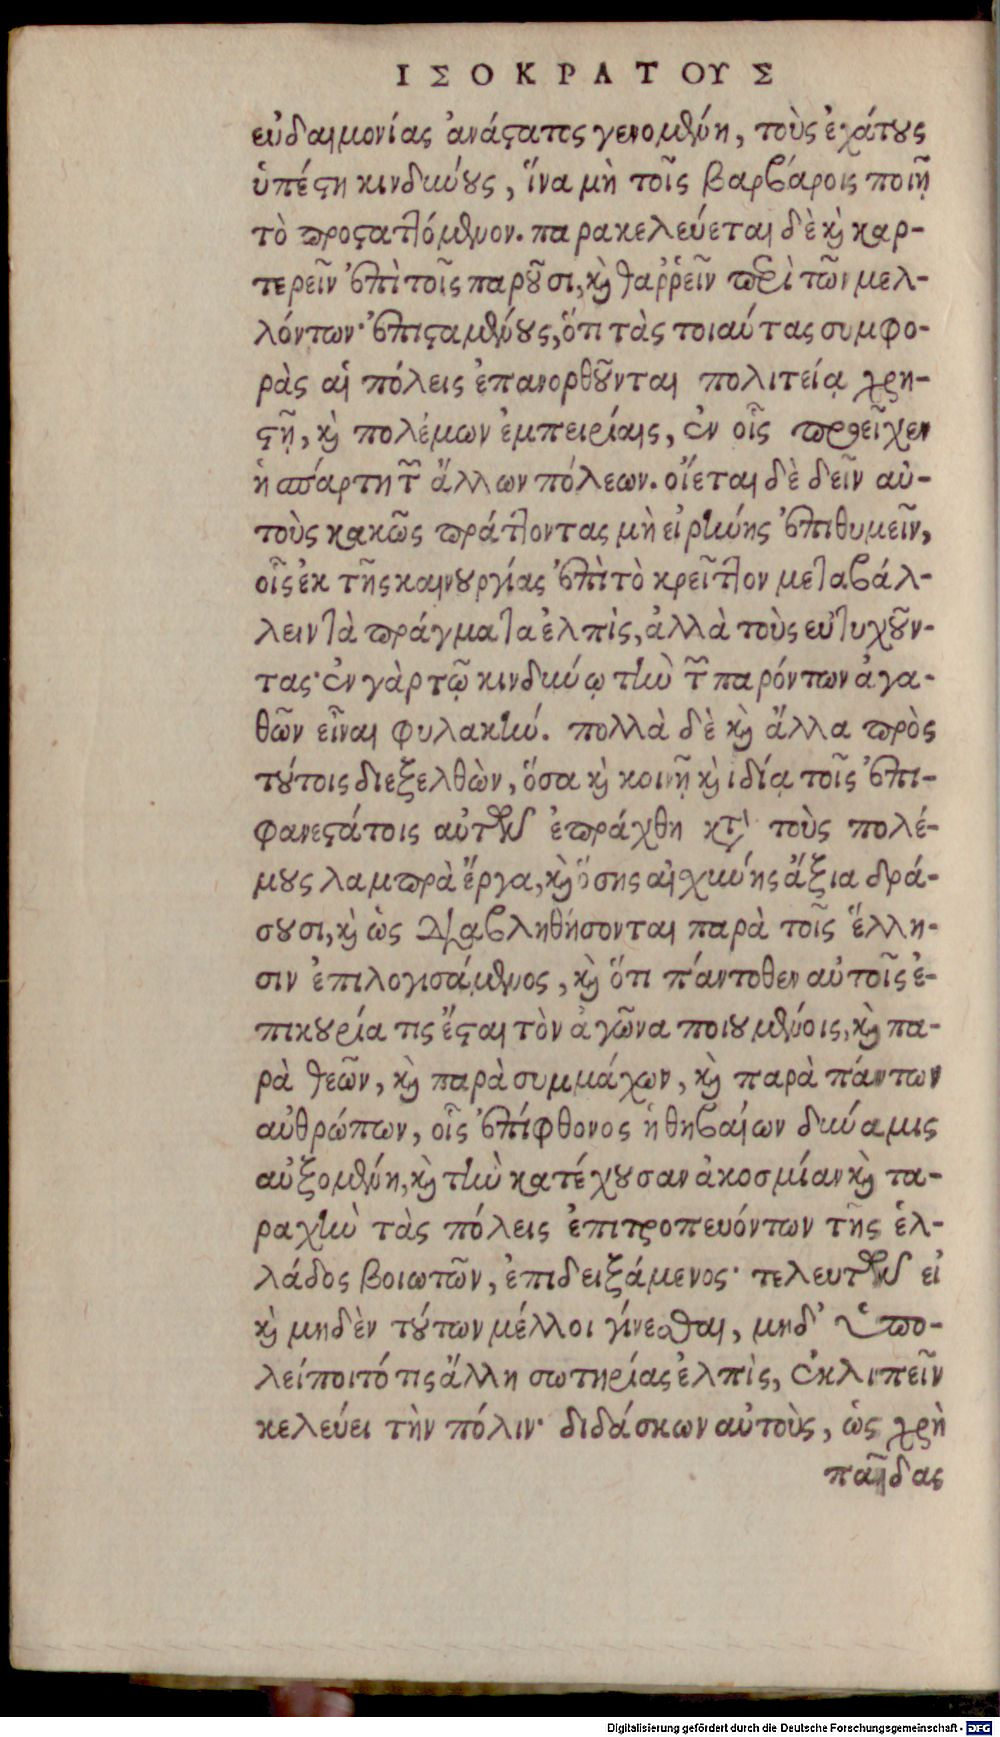 ΙΣΟΚΡΑΤΟΥΣ
εὐδαιμονίας ἀνάστατος γενομένη, τοὺς ἐσχάτους
ὑπέστη κινδύνους, ἵνα μὴ τοῖς βαρβάροις ποιῇ
τὸ προσταττόμενον. παρακελεύεται δὲ καὶ καρ-
τερεῖν ἐπὶ τοῖς παροῦσι, καὶ θαῤῥεῖν περὶ τῶν μελ-
λόντων· ἐπισταμένους, ὅτι τὰς τοιαύτας συμφο-
ρὰς αἱ πόλεις ἐπανορθοῦνται πολιτείᾳ χρη-
στῇ, καὶ πολέμων ἐμπειρίαις, ἐν οἷς προεῖχεν
ἡ σπάρτη τῶν ἄλλων πόλεων. οἴεται δὲ δεῖν αὐ-
τοὺς κακῶς πράττοντας μὴ εἰρήνης ἐπιθυμεῖν,
οἷς ἐκ τῆς καινουργίας ἐπὶ τὸ κρεῖττον μεταβάλ-
λειν τὰ πράγματα ἐλπὶς, ἀλλὰ τοὺς εὐτυχοῦν-
τας· ἐν γὰρ τῷ κινδύνῳ τὴν τῶν παρόντων ἀγα-
θῶν εἶναι φυλακήν. πολλὰ δὲ καὶ ἄλλα πρὸς
τούτοις διεξελθὼν, ὅσα καὶ κοινῇ καὶ ἰδίᾳ τοῖς ἐπι-
φανεστάτοις αὐτῶν ἐπράχθη κατὰ τοὺς πολέ-
μους λαμπρὰ ἔργα, καὶ ὅσης αἰσχύνης ἄξια δρά-
σουσι, καὶ ὡς διαβληθήσονται παρὰ τοῖς ἕλλη-
σιν ἐπιλογισάμενος, καὶ ὅτι πάντοθεν αὐτοῖς ἐ-
πικουρία τις ἔσται τὸν ἀγῶνα ποιουμένοις, καὶ πα-
ρὰ θεῶν, καὶ παρὰ συμμάχων, καὶ παρὰ πάντων
ἀνθρώπων, οἷς ἐπίφθονος ἡ θηβαίων δύναμις
αὐξομένη, καὶ τὴν κατέχουσαν ἀκοσμίαν καὶ τα-
ραχὴν τὰς πόλεις ἐπιτροπευόντων τῆς ἑλ-
λάδος βοιωτῶν, ἐπιδειξάμενος· τελευτῶν εἰ
καὶ μηδὲν τούτων μέλλοι γίνεσθαι, μηδ' ὑπο-
λείποιτό τις ἄλλη σωτηρίας ἐλπὶς, ἐκλιπεῖν
κελεύει τὴν πόλιν· διδάσκων αὐτοὺς, ὡς χρὴ
παῖδας
Digitalisierung gefördert durch die Deutsche Forschungsgemeinschaft - DFG